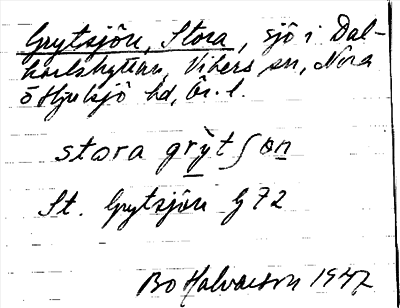 Grytsjön, Stora, sjö i Dal-
karlshyttan, Vikers sn, Nora
o Hjulsjö hd, Ör. l.
stora grỳtʃøn
St. Grytsjön G 72
Bo Halvarson 1947